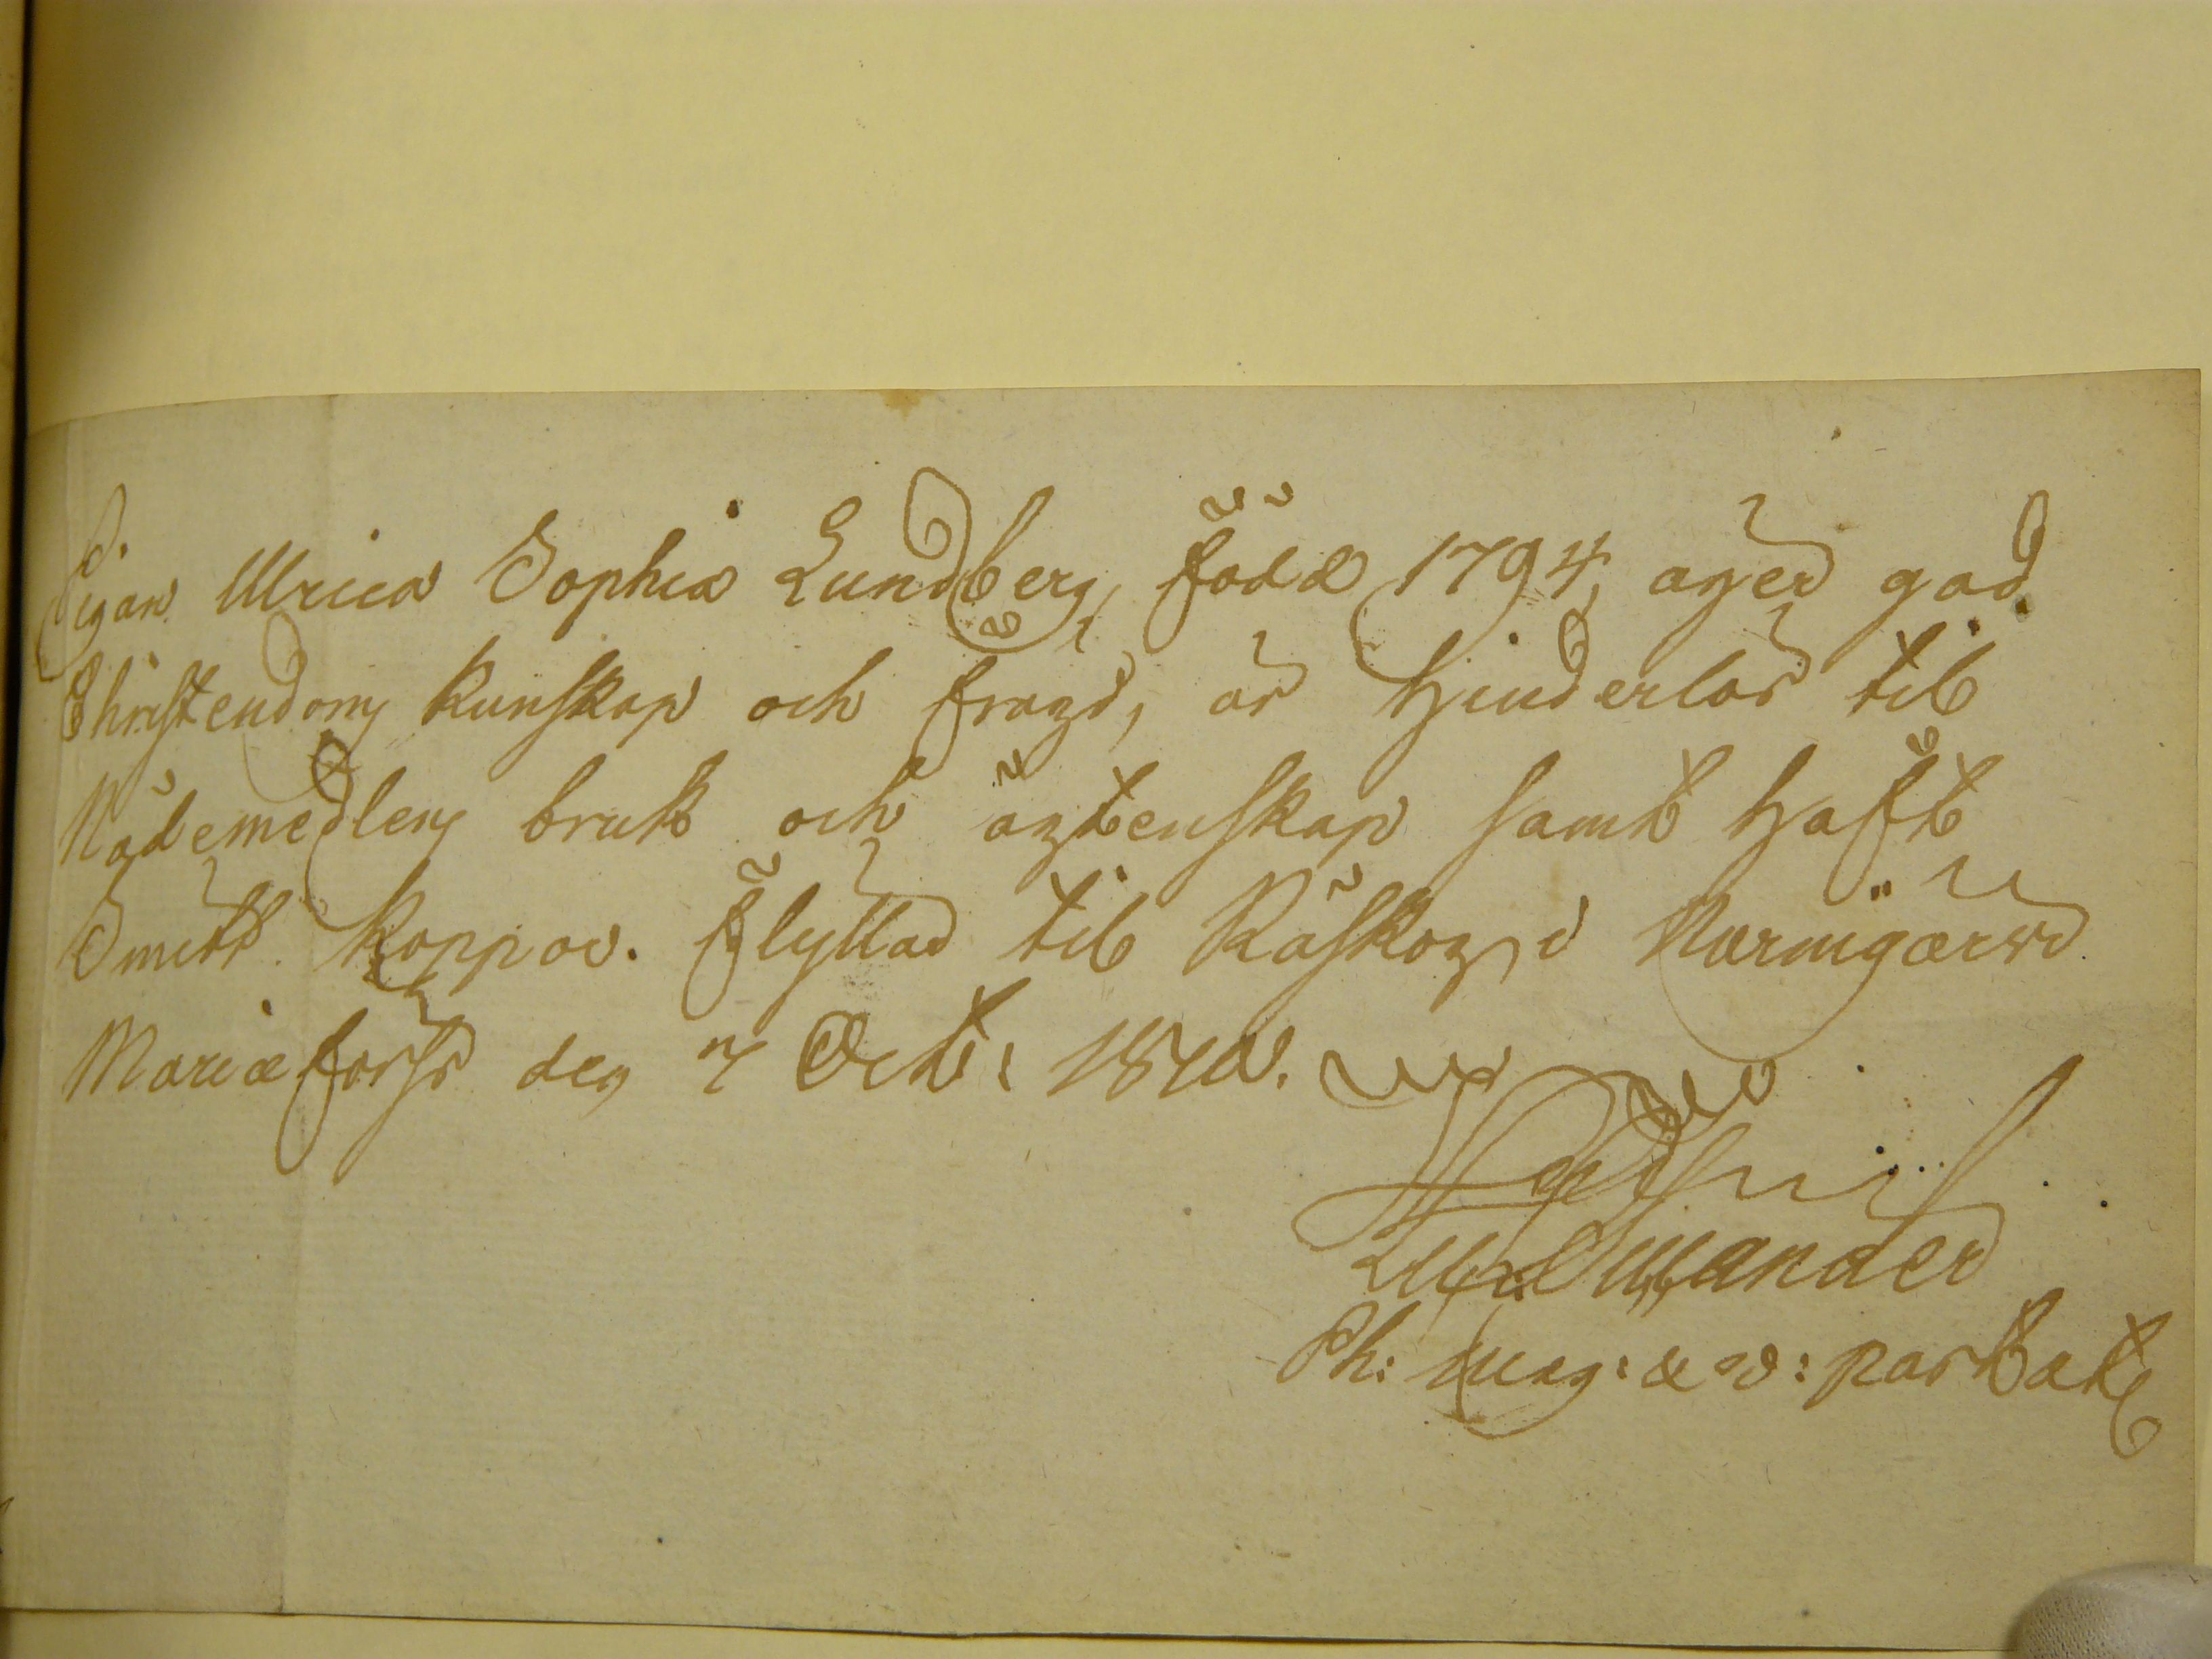 Pigan Ulrica Sophia Lundberg, född 1794, äger god
Christendoms kunskap och frägd, är hinderlös til
Nådemedlens bruk och ägtenskap samt haft
Smitt koppor. flyttar til Råskog i
Mariæfors den 7 Oct: 1810.
Ph: Mag: & v: pastor